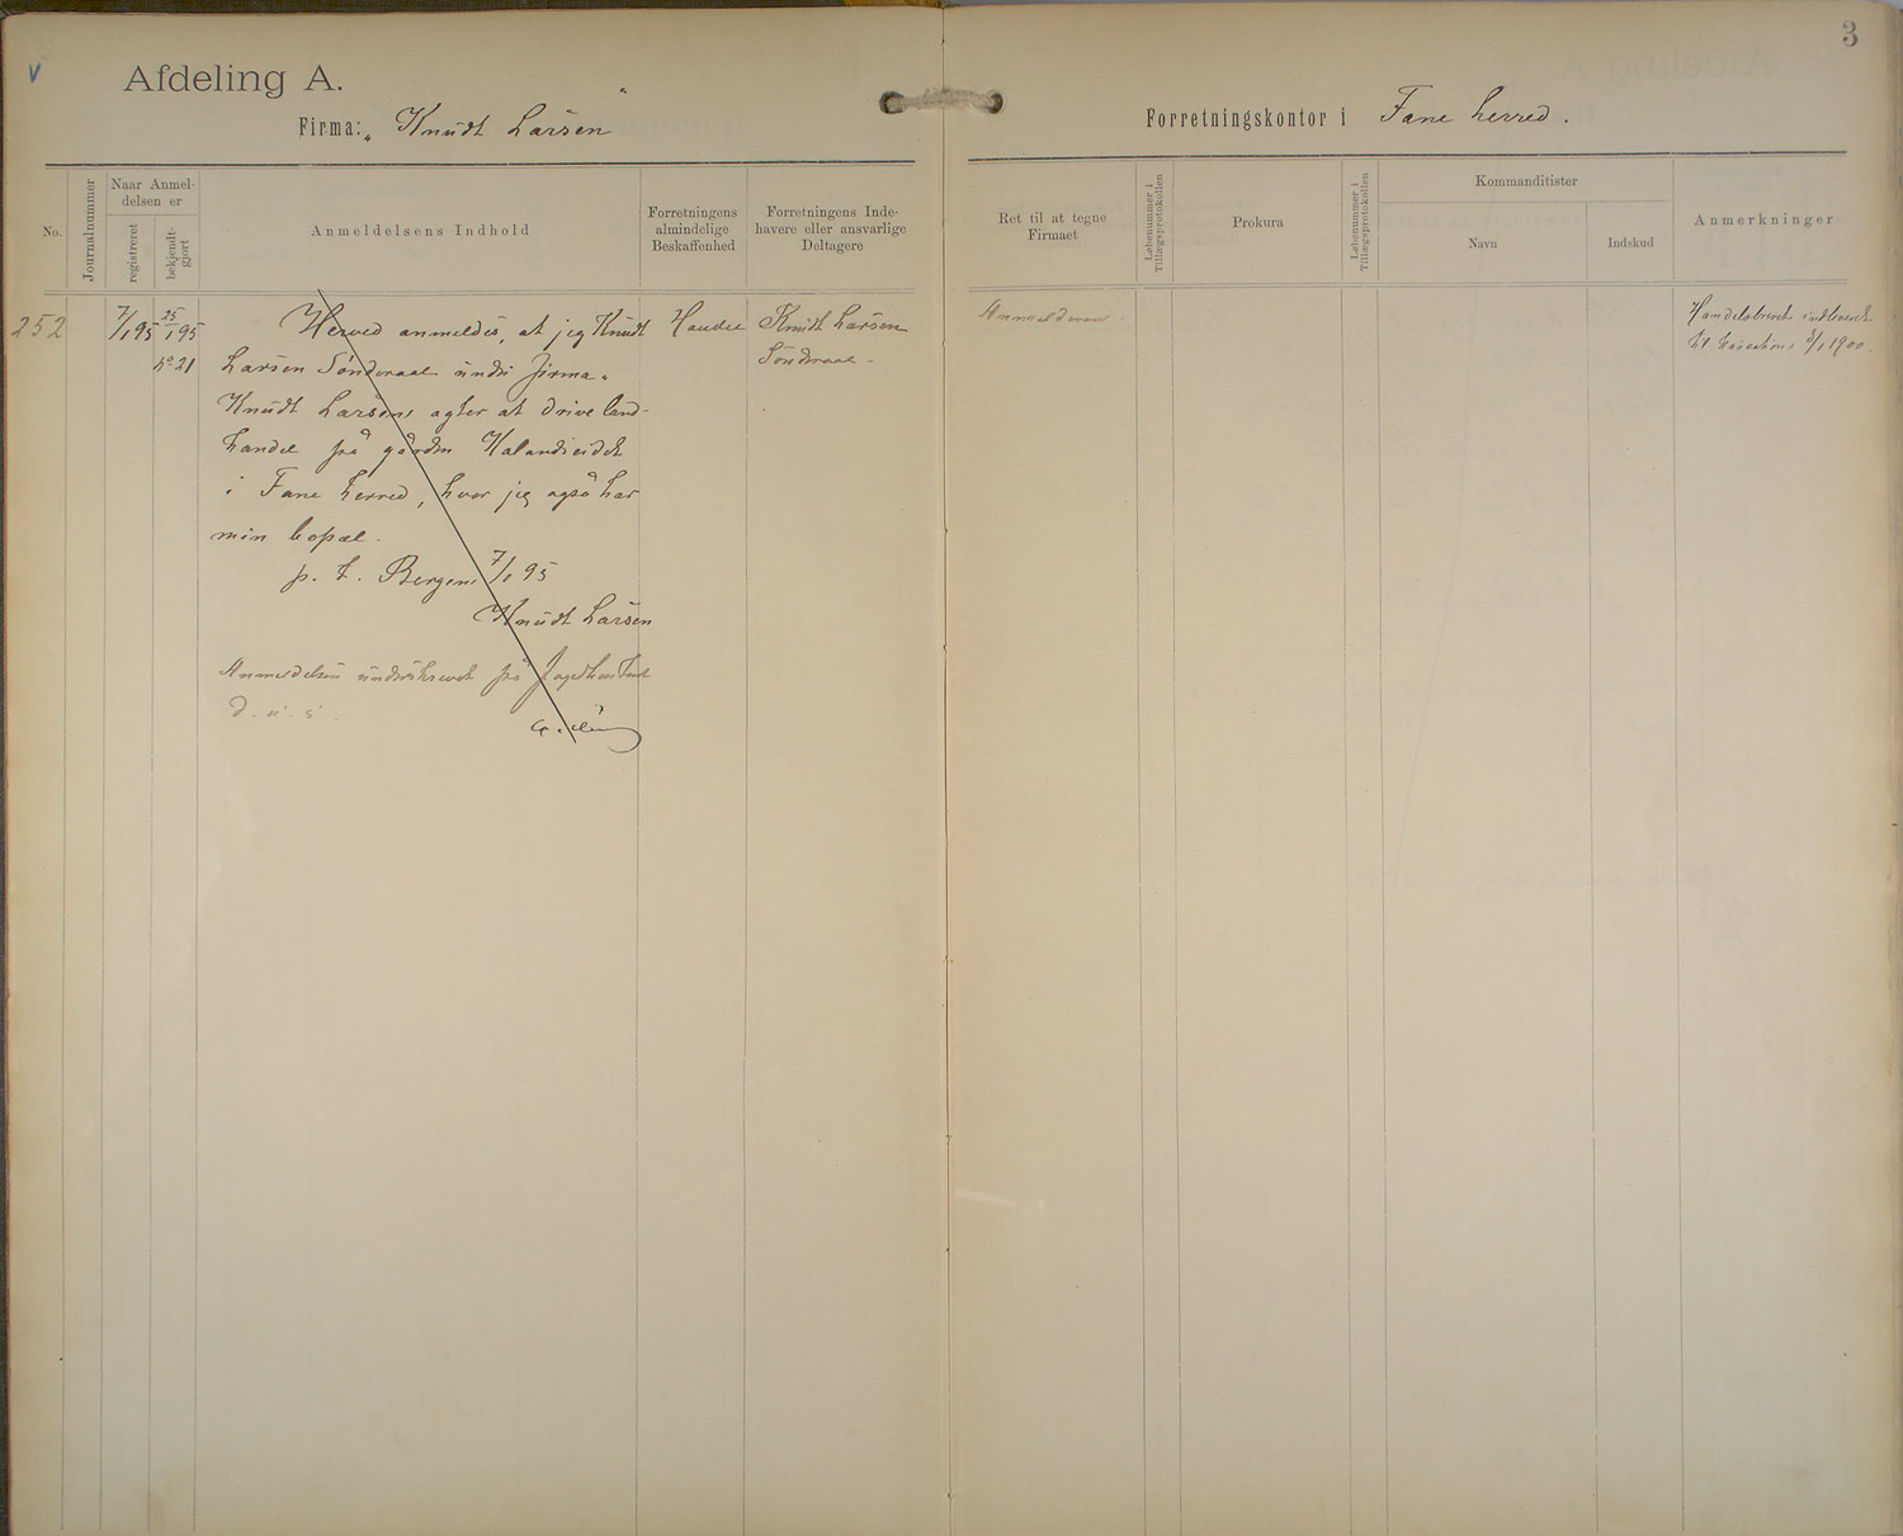 3
V
Afdeling A.
Firma: „Knudt Larsen"
Forretningskontor i Fane herred.
No.
Journalnummer
Naar Anmel-
delsen er
registreret
bekjendt-
gjort
Anmeldelsens Indhold
Forretningens
almindelige
Beskaffenhed
Forretningens Inde-
havere eller ansvarlige
Deltagere
Ret til at tegne
Firmaet
Løbenummer i
Tillægsprotokollen
Prokura
Løbenummer i
Tillægsprotokollen
Kommanditister
Navn
Indskud
Anmerkninger
252
7/1 95
25/1 95
No 21
Herved anmeldes, at jeg Knudt
Larsen Sönderaal under firma
Knudt Larsen agter at drive land-
handel på gården Kalandseidet
i Fane herred, hvor jeg også har
min bopæl.
p. t. Bergen 7/1 95
Knudt Larsen
Anmeldelsen underskrevet på
d. u. s.
Handel
Knudt Larsen
Sönderaal
Anmelderen
Handelsbrevet indleveret
til kassation 3/1 1900.